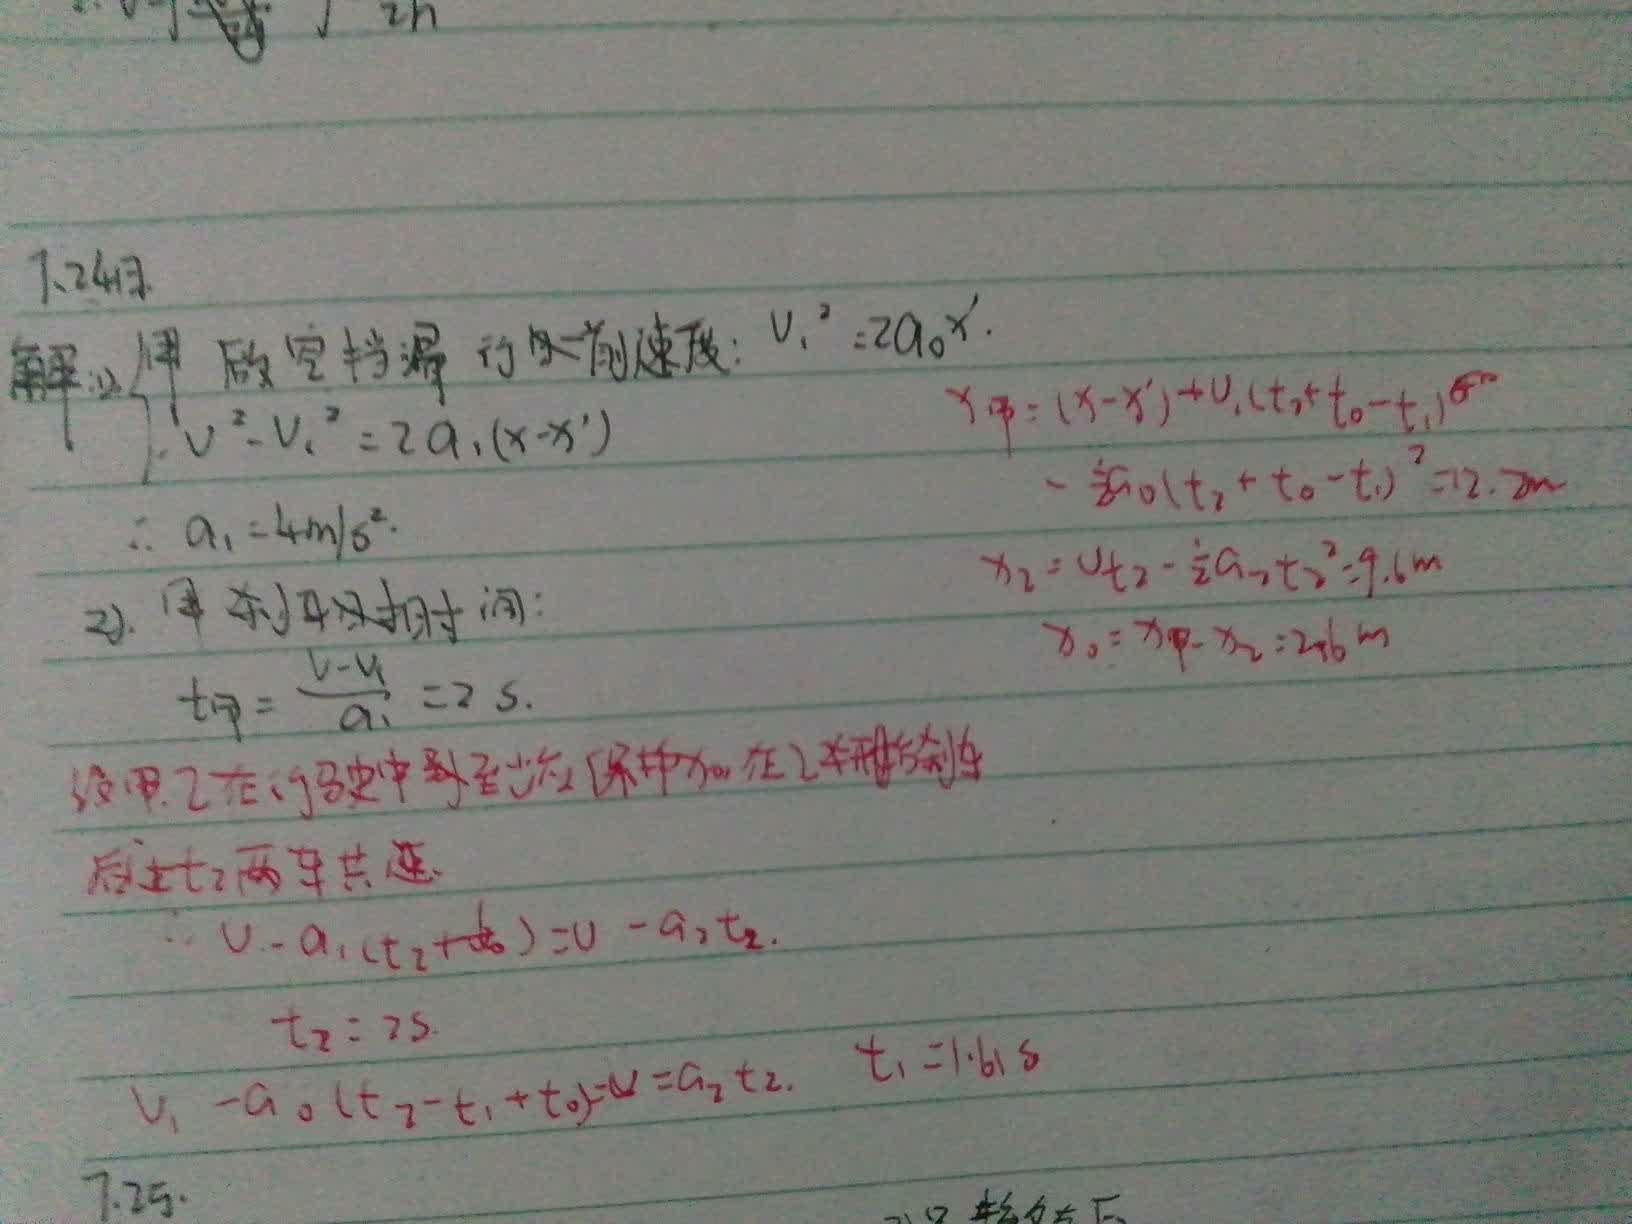 2h
7.24日
解:(1) 甲 放空挡滑行时前速度: v₁² = 2a₀x'.
v² - v₁² = 2a₁(x-x')
∴ a₁ = 4m/s².
2). 甲刹车时间:
t甲 = (v-v₁)/a₁ = 2s.
设甲.乙在行驶中 至少应保持x₀, 在乙车刹车
后经t₂两车共速.
∴ v - a₁(t₂+t₀) = v - a₂t₂.
t₂ = 2s.
v₁ - a₀(t₂-t₁+t₀) = v = a₂t₂. t₁ = 1.61s
x甲 = (x-x') + v₁(t₂+t₀-t₁)
- ½a₀(t₂+t₀-t₁)² = 12.2m
x₂ = vt₂ - ½a₂t₂² = 9.6m
x₀ = x甲 - x₂ = 2.6m
7.25.